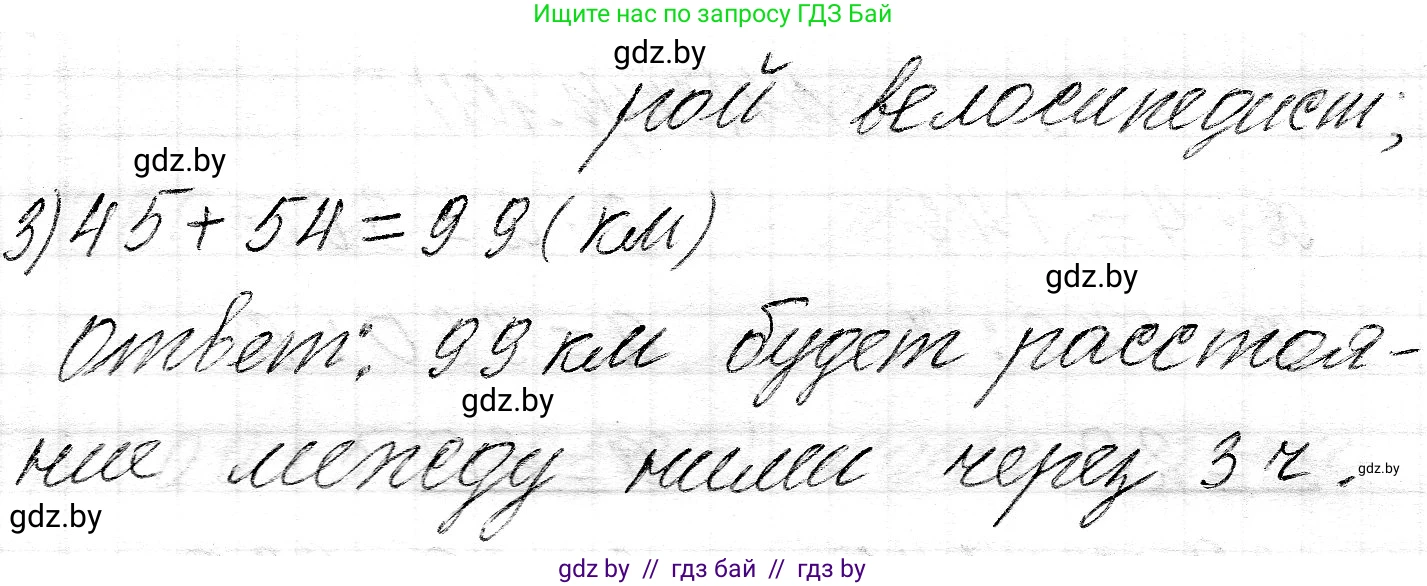 Ищите нас по запросу ГДЗ Бай
gdz.by
рой велосипедист;
gdz.by
3) 45 + 54 = 99 (км)
gdz.by
Ответ: 99 км будет расстоя-
gdz.by
ние между ними через 3 ч.
gdz.by
gdz.by
gdz.by // гдз бай // гдз by